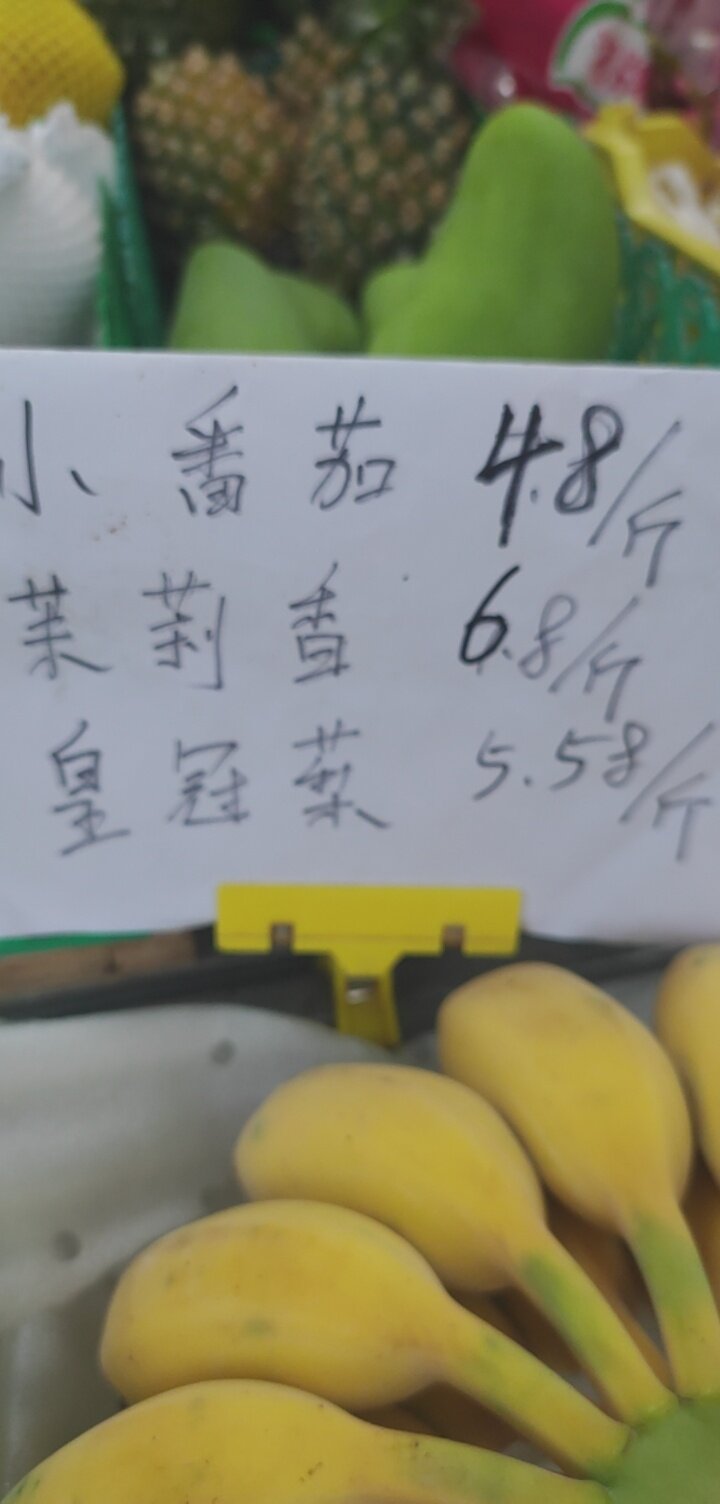 小番茄 4.8/斤
茉莉香 6.8/斤
皇冠梨 5.58/斤